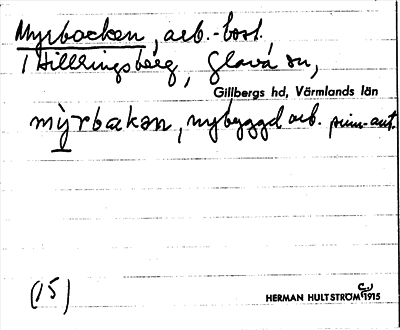 Myrbacken, arb.-bost.
i Hillringsberg, Glava sn,
Gillbergs hd, Värmlands län
mỳrbakən, nybyggd arb.
(15)
HERMAN HULTSTRÖM 1915